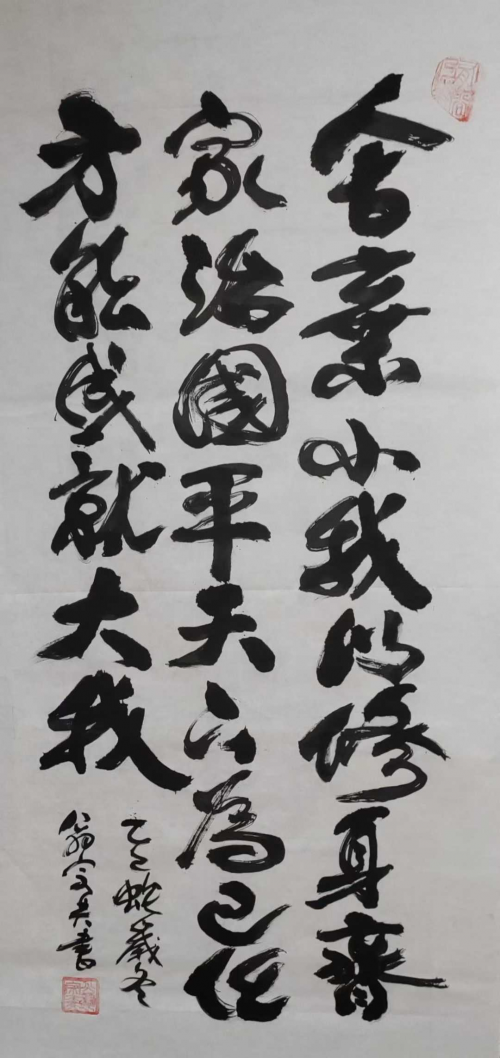 舍棄小我以修身齊
家治國平天下為己任
方能成就大我
乙巳蛇歲冬
翁
書